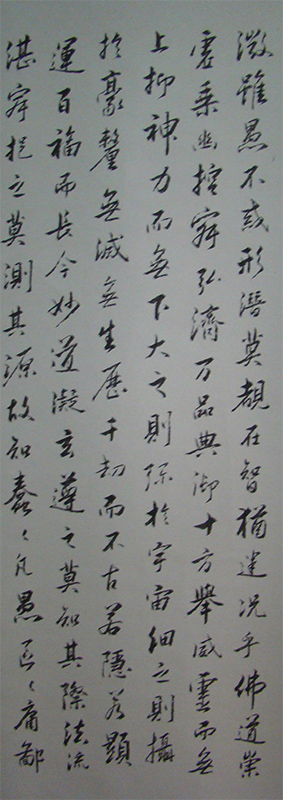 徵雖愚不惑形潛莫覩在智猶迷況乎佛道崇
虛乘幽控寂弘濟万品典御十方舉威靈而無
上抑神力而無下大之則弥於宇宙細之則攝
於豪釐無滅無生歷千劫而不古若隱若顯
運百福而長今妙道凝玄遵之莫知其際法流
湛寂挹之莫測其源故知蠢々凡愚區々庸鄙